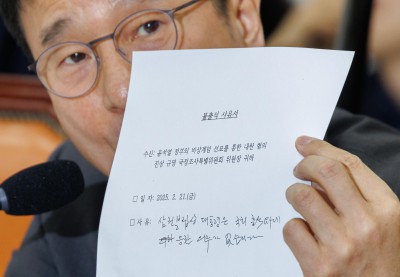 불출석 사유서
수신: 윤석열 정부의 비상계엄 선포를 통한 내란 혐의
진상 규명 국정조사특별위원회 위원장 귀하
□ 일 자: 2025. 2. 21(금)
□ 사 유: 삼권분립상 대통령은 국회
응할 의무가 없습니다